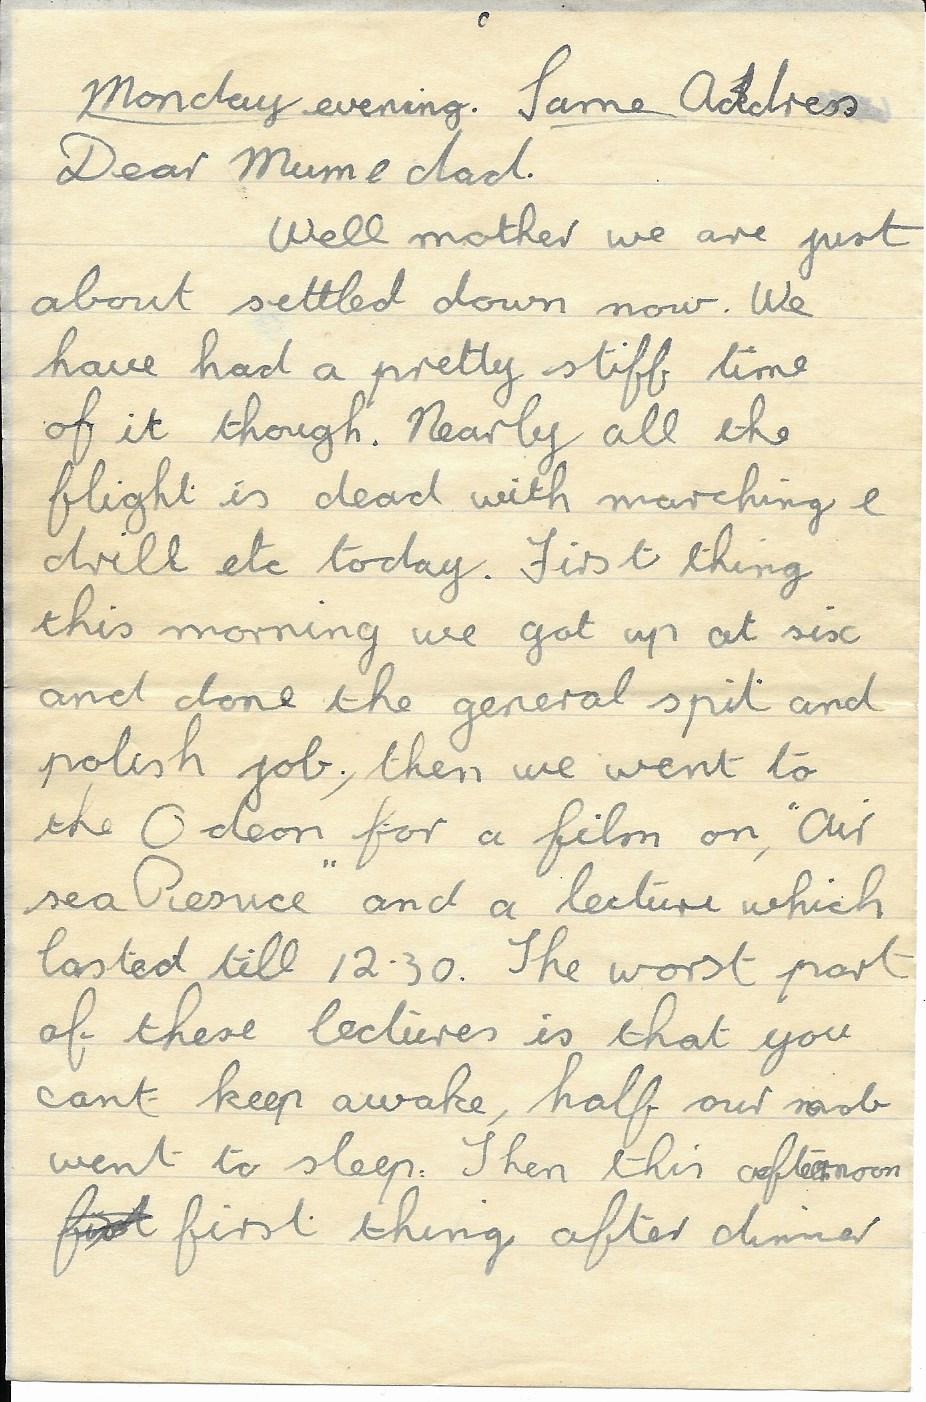 Monday evening. Same Address
Dear Mum e dad.
Well mother we are just
about settled down now. We
have had a pretty stiff time
of it though. Nearly all the
flight is dead with marching e
drill etc today. First thing
this morning we got up at six
and done the general spit and
polish job, then we went to
the Odeon for a film on, "Air
sea Resuce" and a lecture which
lasted till 12.30. The worst part
of these lectures is that you
cant keep awake, half our mob
went to sleep. Then this afternoon
first thing after dinner